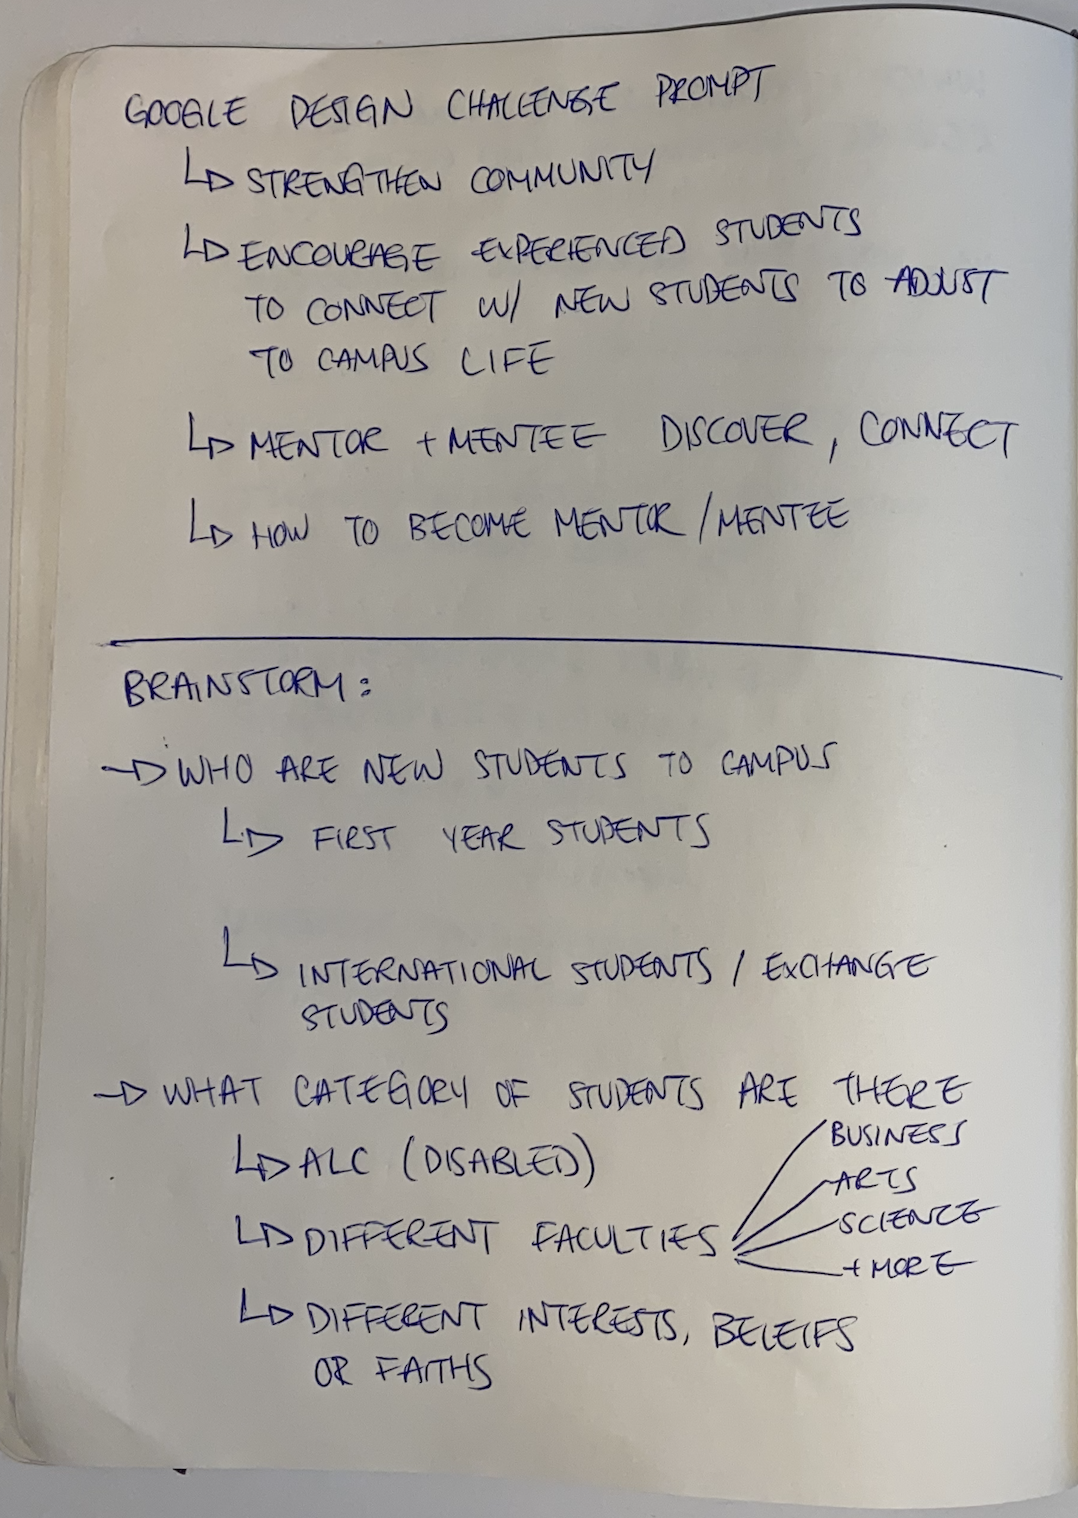 GOOGLE DESIGN CHALLENGE PROMPT
↳ STRENGTHEN COMMUNITY
↳ ENCOURAGE EXPERIENCED STUDENTS
TO CONNECT W/ NEW STUDENTS TO ADJUST
TO CAMPUS LIFE
↳ MENTOR + MENTEE DISCOVER, CONNECT
↳ HOW TO BECOME MENTOR / MENTEE
BRAINSTORM:
→ WHO ARE NEW STUDENTS TO CAMPUS
↳ FIRST YEAR STUDENTS
↳ INTERNATIONAL STUDENTS / EXCHANGE
STUDENTS
→ WHAT CATEGORY OF STUDENTS ARE THERE
↳ ALC (DISABLED)
↳ DIFFERENT FACULTIES
BUSINESS
ARTS
SCIENCE
+ MORE
↳ DIFFERENT INTERESTS, BELEIFS
OR FAITHS